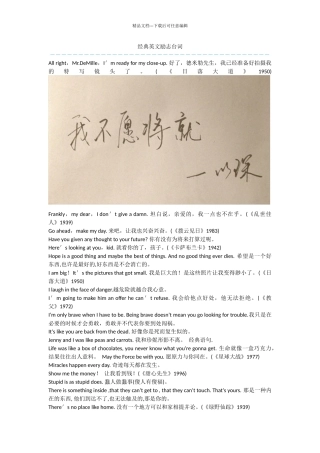 精品文档--下载后可任意编辑
经典英文励志台词
All right，Mr.DeMille，I’m ready for my close-up. 好了，德米勒先生，我已经准备好拍摄我
的特写镜头了。(《日落大道》1950)
我不愿将就
以琛
Frankly，my dear，I don’t give a damn. 坦白说，亲爱的，我一点也不在乎。(《乱世佳
人》1939)
Go ahead，make my day. 来吧，让我也兴奋兴奋。(《拨云见日》1983)
Have you given any thought to your future? 你有没有为将来打算过呢。
Here’s looking at you，kid. 就看你的了，孩子。(《卡萨布兰卡》1942)
Hope is a good thing and maybe the best of things. And no good thing ever dies. 希望是一个好
东西,也许是最好的,好东西是不会消亡的。
I am big！It’s the pictures that got small. 我是巨大的！是这些照片让我变得渺小了。(《日
落大道》1950)
I laugh in the face of danger.越危险就越合我心意。
I’m going to make him an offer he can’t refuse. 我会给他点好处，他无法拒绝。(《教
父》1972)
I'm only brave when I have to be. Being brave doesn't mean you go looking for trouble.我只是在
必要的时候才会勇敢，勇敢并不代表你要到处闯祸。
It's like you are back from the dead. 好像你是死而复生似的。
Jenny and I was like peas and carrots. 我和珍妮形影不离。 经典语句.
Life was like a box of chocolates, you never know what you're gonna get. 生命就像一盒巧克力，
结果往往出人意料。 May the Force be with you. 愿原力与你同在。(《星球大战》1977)
Miracles happen every day. 奇迹每天都在发生。
Show me the money！ 让我看到钱!(《甜心先生》1996)
Stupid is as stupid does. 蠢人做蠢事(傻人有傻福)。
There is something inside ,that they can't get to , that they can't touch. That's yours. 那是一种内
在的东西, 他们到达不了,也无法触及的,那是你的。
There’s no place like home. 没有一个地方可以和家相提并论。(《绿野仙踪》1939)